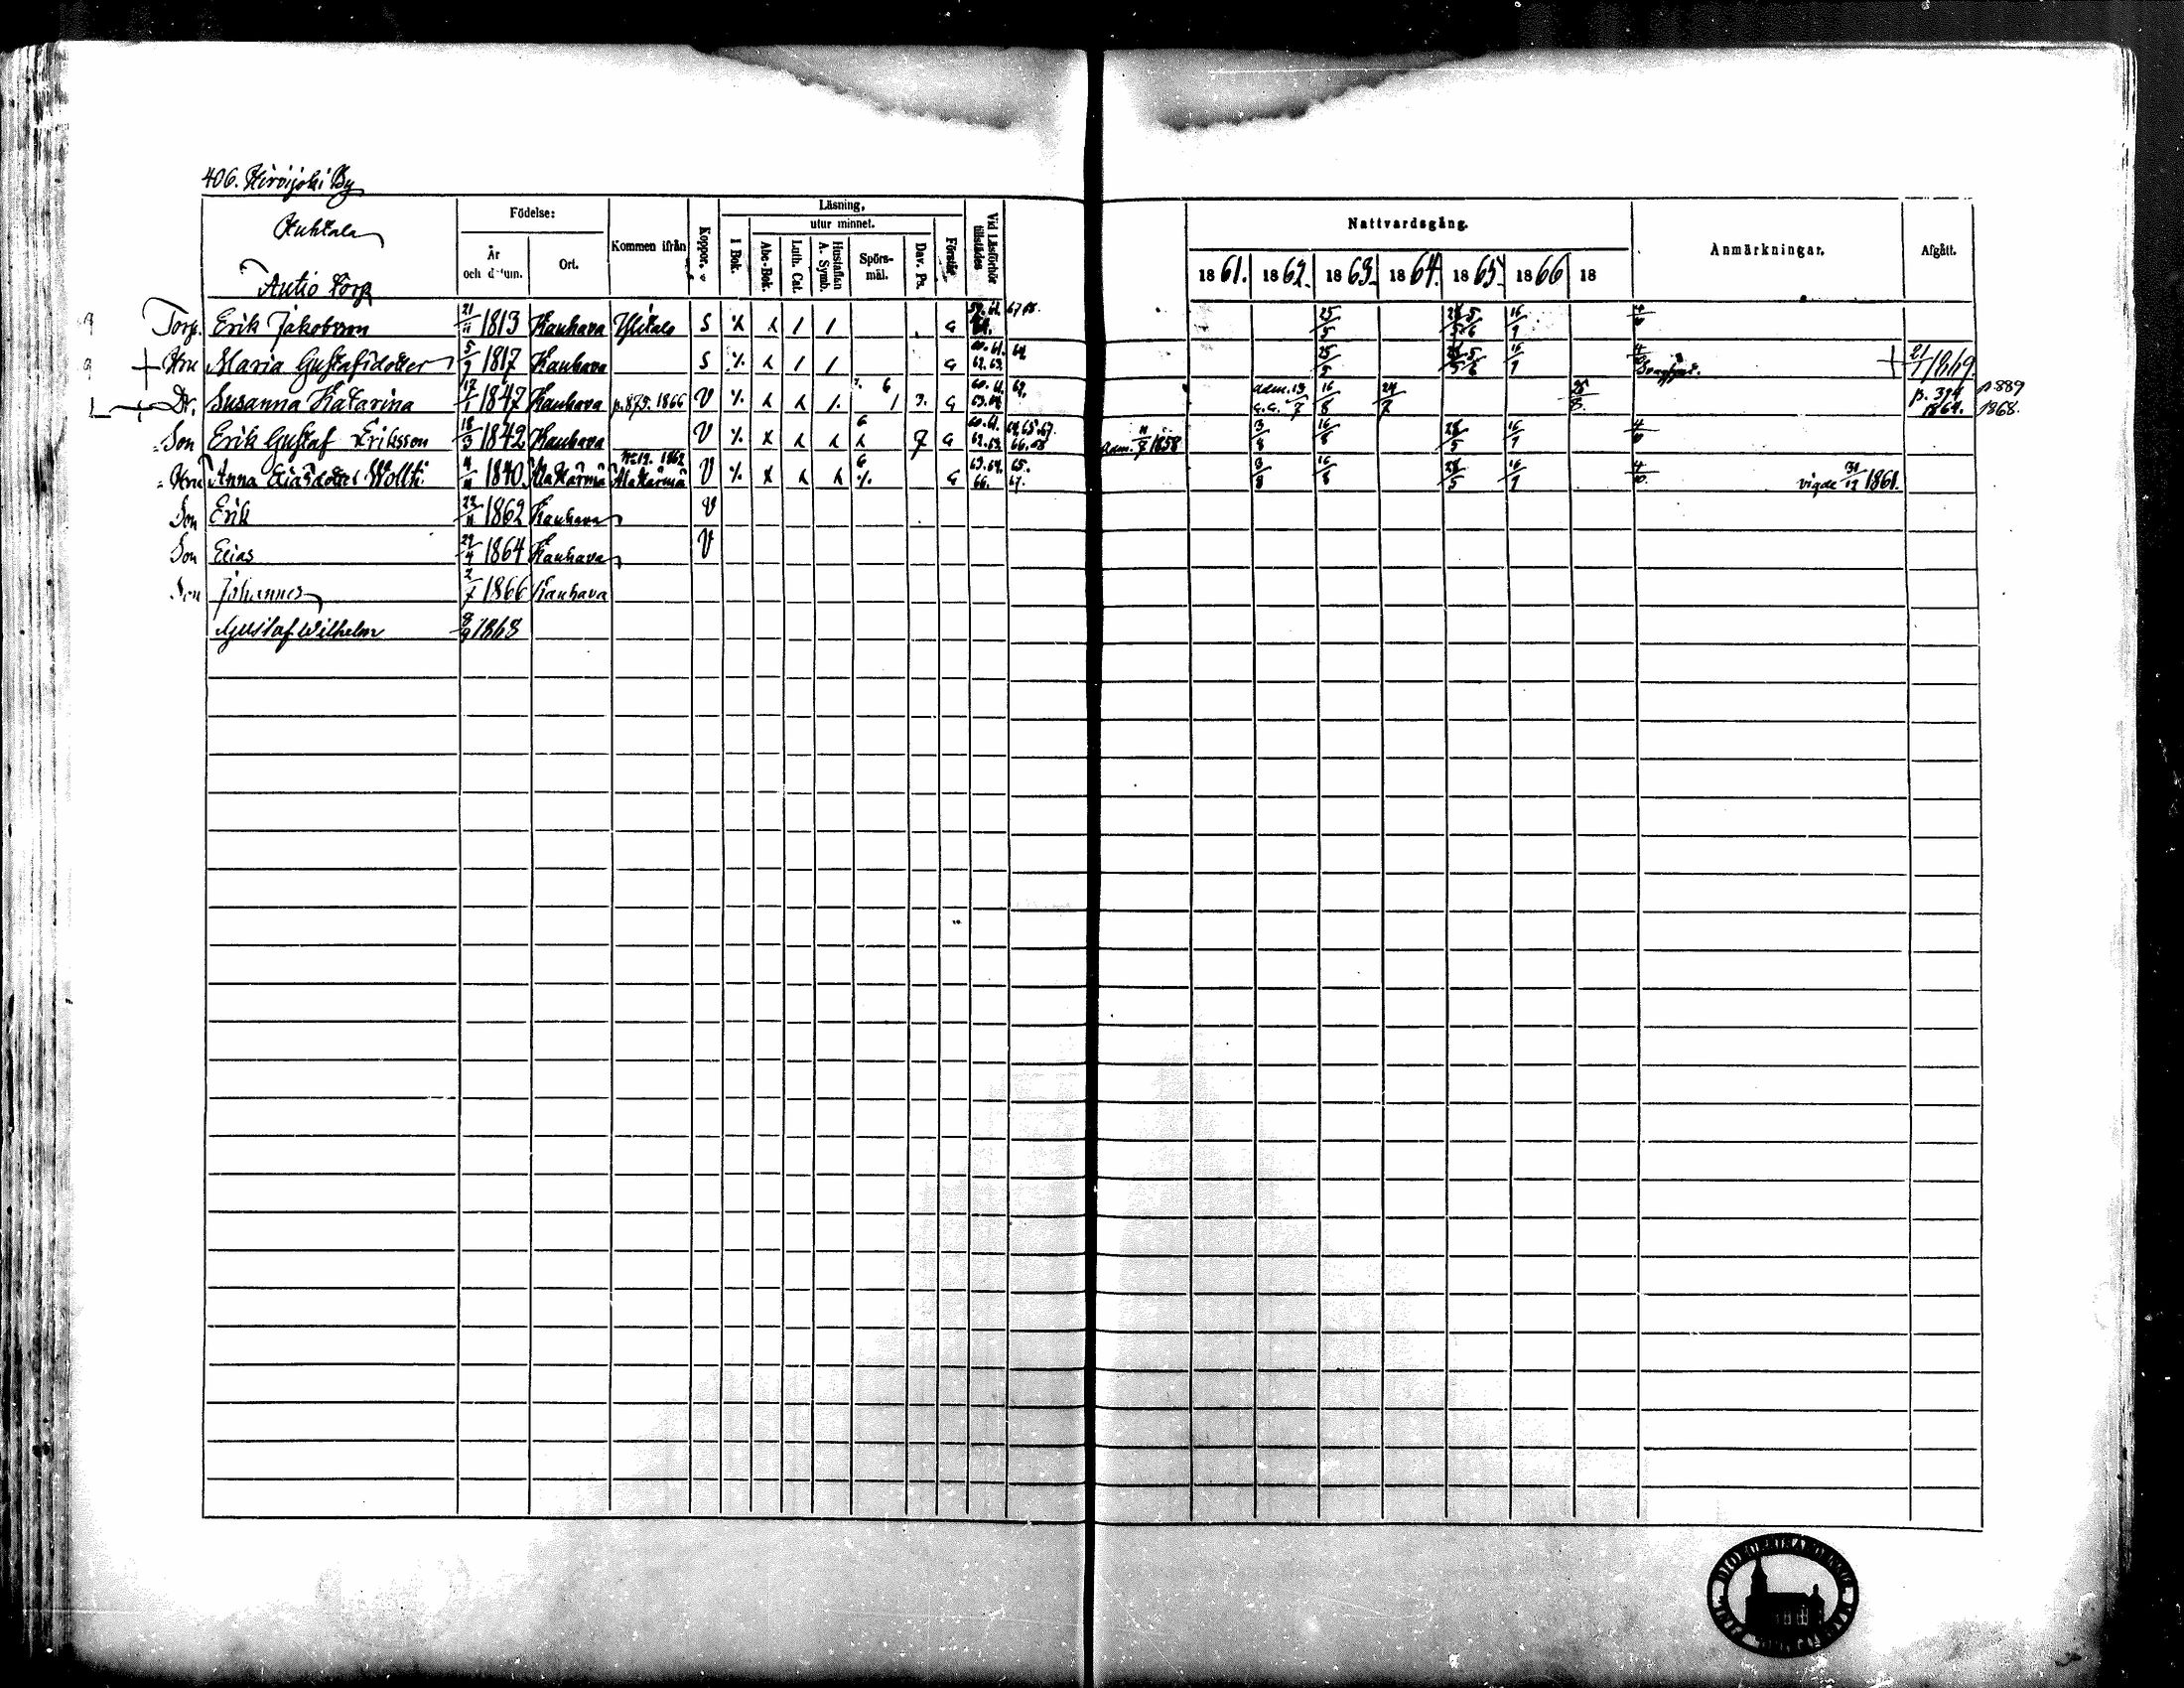 406. Hirvijoki By
Huhtala
Autio Torp
Födelse:
År och datum.
Ort.
Kommen ifrån
Koppor.
Läsning,
utur minnet.
I Bok.
Abc-Bok.
Luth. Cat.
Hustaflan A. Symb.
Spörs-mål.
Dav. Ps.
Förstår
Vid Läsförhör tillstädes
Nattvardsgång.
1861. 1862. 1863. 1864. 1865. 1866 18
Anmärkningar.
Afgått.
Torp. Erik Jakobsson 21/11 1813 Kauhava Ylitalo S G 67 68. 25/5 16/9
+ Hru Maria Gustafsdotter 5/9 1817 Kauhava S G 60. 61. 62. 63. 64 25/5 16/9 + 21/1 1869.
Dr. Susanna Katarina 17/1 1847 Kauhava p. 875. 1866 V 6 1 3. G 60. 61. 69. adm. 13/7 16/8 24/7 25/8 p. 394 1864. p 889 1868.
Son Erik Gustaf Eriksson 18/3 1842 Kauhava V 6 7 G 60. 61. 62. 63. 64. 65. 67. 66. 68 adm. 11/7 1858 3/8 16/8 28/5 16/9 4/10
Hru Anna Eliaedotter Wolti 4/11 1840. Alakärmä No 19. 1862 Alakärmä V 6 G 63. 64. 65. 66. 67. 3/8 16/8 28/5 16/9 4/10 vigde 31/12 1861.
Son Erik 22/11 1862 Kauhava V
Son Elias 29/4 1864 Kauhava V
Son Johannes 2/7 1866 Kauhava
Gustaf Wilhelm 8/9 1868